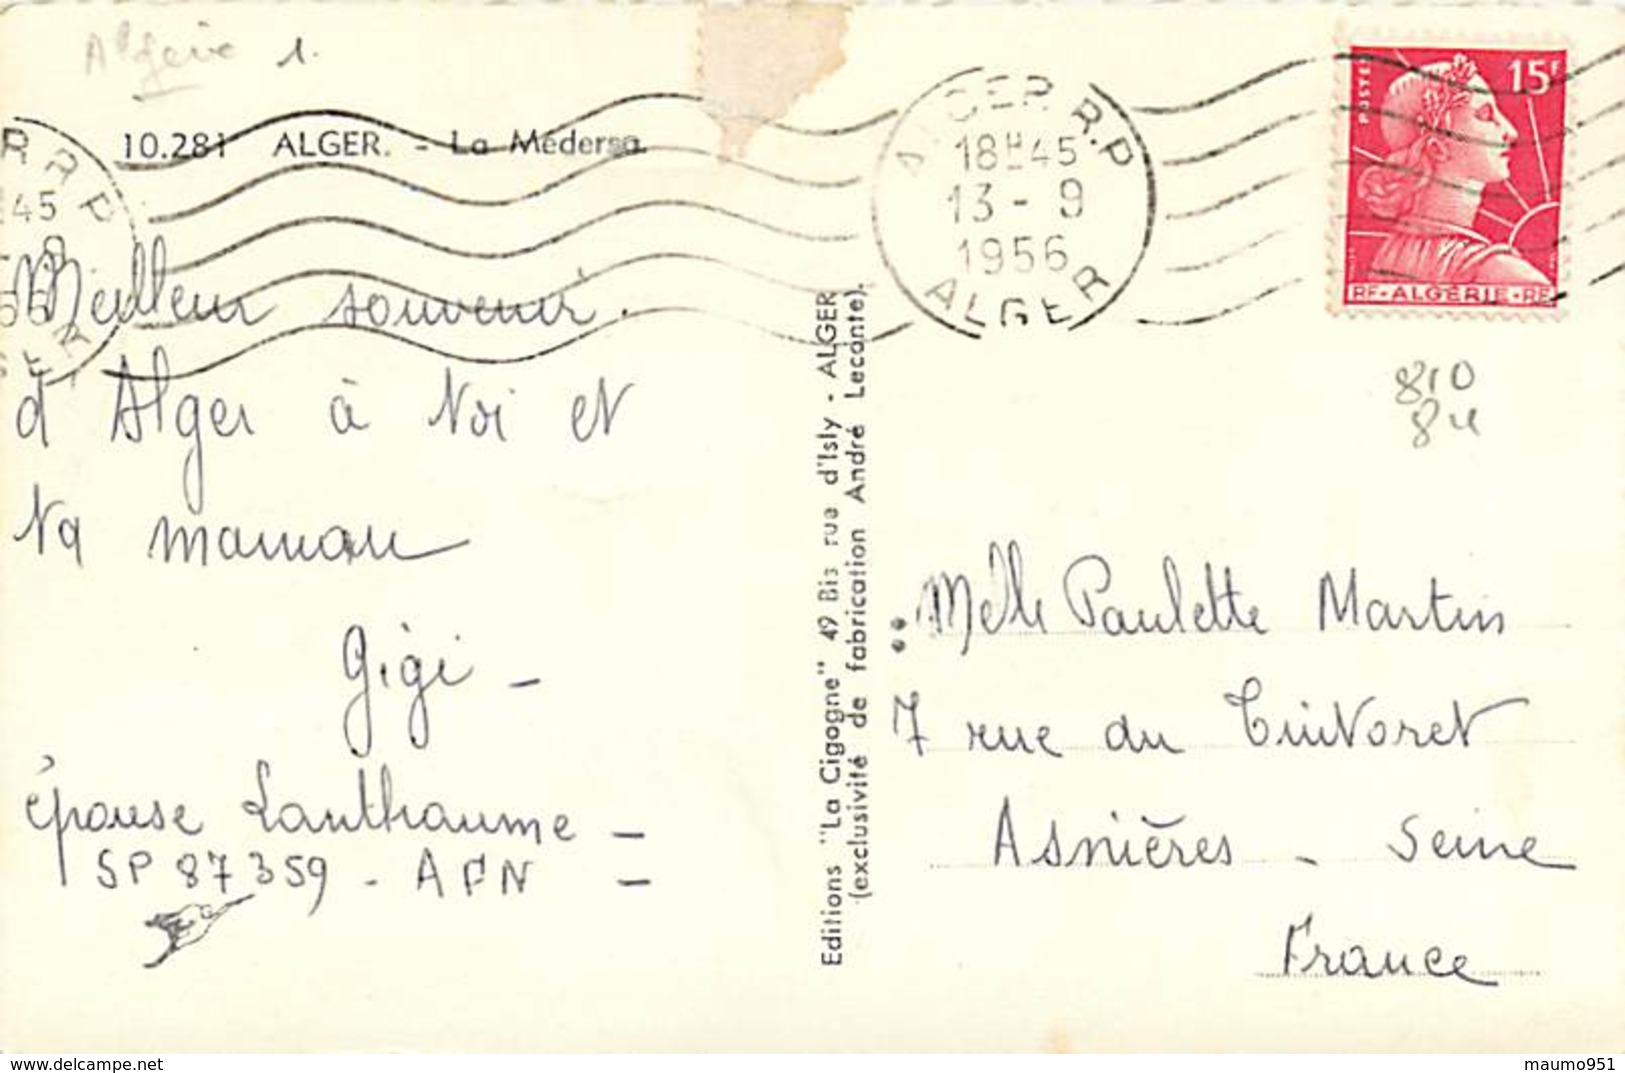 Algérie 1.
10.281 ALGER. - La Médersa.
ALGER R.P
18H45
13 - 9
1956
ALGER
POSTES
15F
RF - ALGÉRIE - RF
R R P
45
9
56
GER
810
84
Meilleur souvenir
d'Alger à toi et
ta maman
Gigi -
épouse Lanthaume -
SP 87359 - AFN -
Editions "La Cigogne" 49 Bis rue d'Isly - ALGER
(exclusivité de fabrication André Leconte).
Melle Paulette Martin
7 rue du Tintoret
Asnières - Seine
France
maumo951